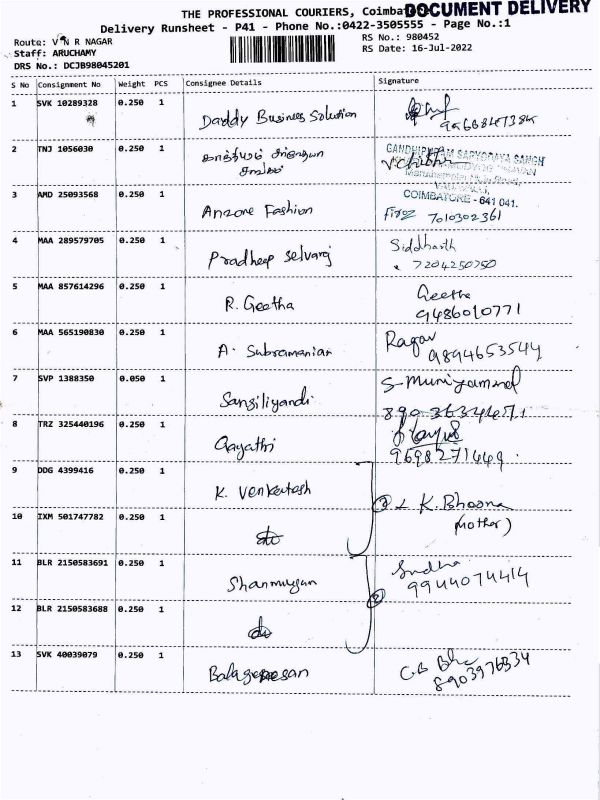 THE PROFESSIONAL COURIERS, Coimbat
DOCUMENT DELIVERY
Delivery Runsheet - P41 - Phone No.:0422-3505555 - Page No.:1
Route: V N R NAGAR
RS No.: 980452
Staff: ARUCHAMY
RS Date: 16-Jul-2022
DRS No.: DCJB98045201
S No Consignment No Weight PCS Consignee Details Signature
1 SVK 10289328 0.250 1 Daddy Business Solution
2 TNJ 1056030 0.250 1
GANDHIPURAM SARVODAYA SANGH
COIMBATORE - 641 041.
3 AMD 25093568 0.250 1 Anzone Fashion Firoz 7010302361
4 MAA 289579705 0.250 1 Pradheep Selvaraj Siddharth
7204250750
5 MAA 857614296 0.250 1 R. Geetha Geetha
9486010771
6 MAA 565190830 0.250 1 A. Subramanian Ragav
9894653544
7 SVP 1388350 0.050 1 Sangiliyandi
8903634671
8 TRZ 325440196 0.250 1 Gayathri
9698271449
9 DDG 4399416 0.250 1 K. Venkatesh
2 K. Bhoona
(mother)
10 IXM 501747782 0.250 1 do
11 BLR 2150583691 0.250 1 Shanmugan Sudha
9944074414
2
12 BLR 2150583688 0.250 1 do
13 SVK 40039079 0.250 1 Balaganesan
8903976334